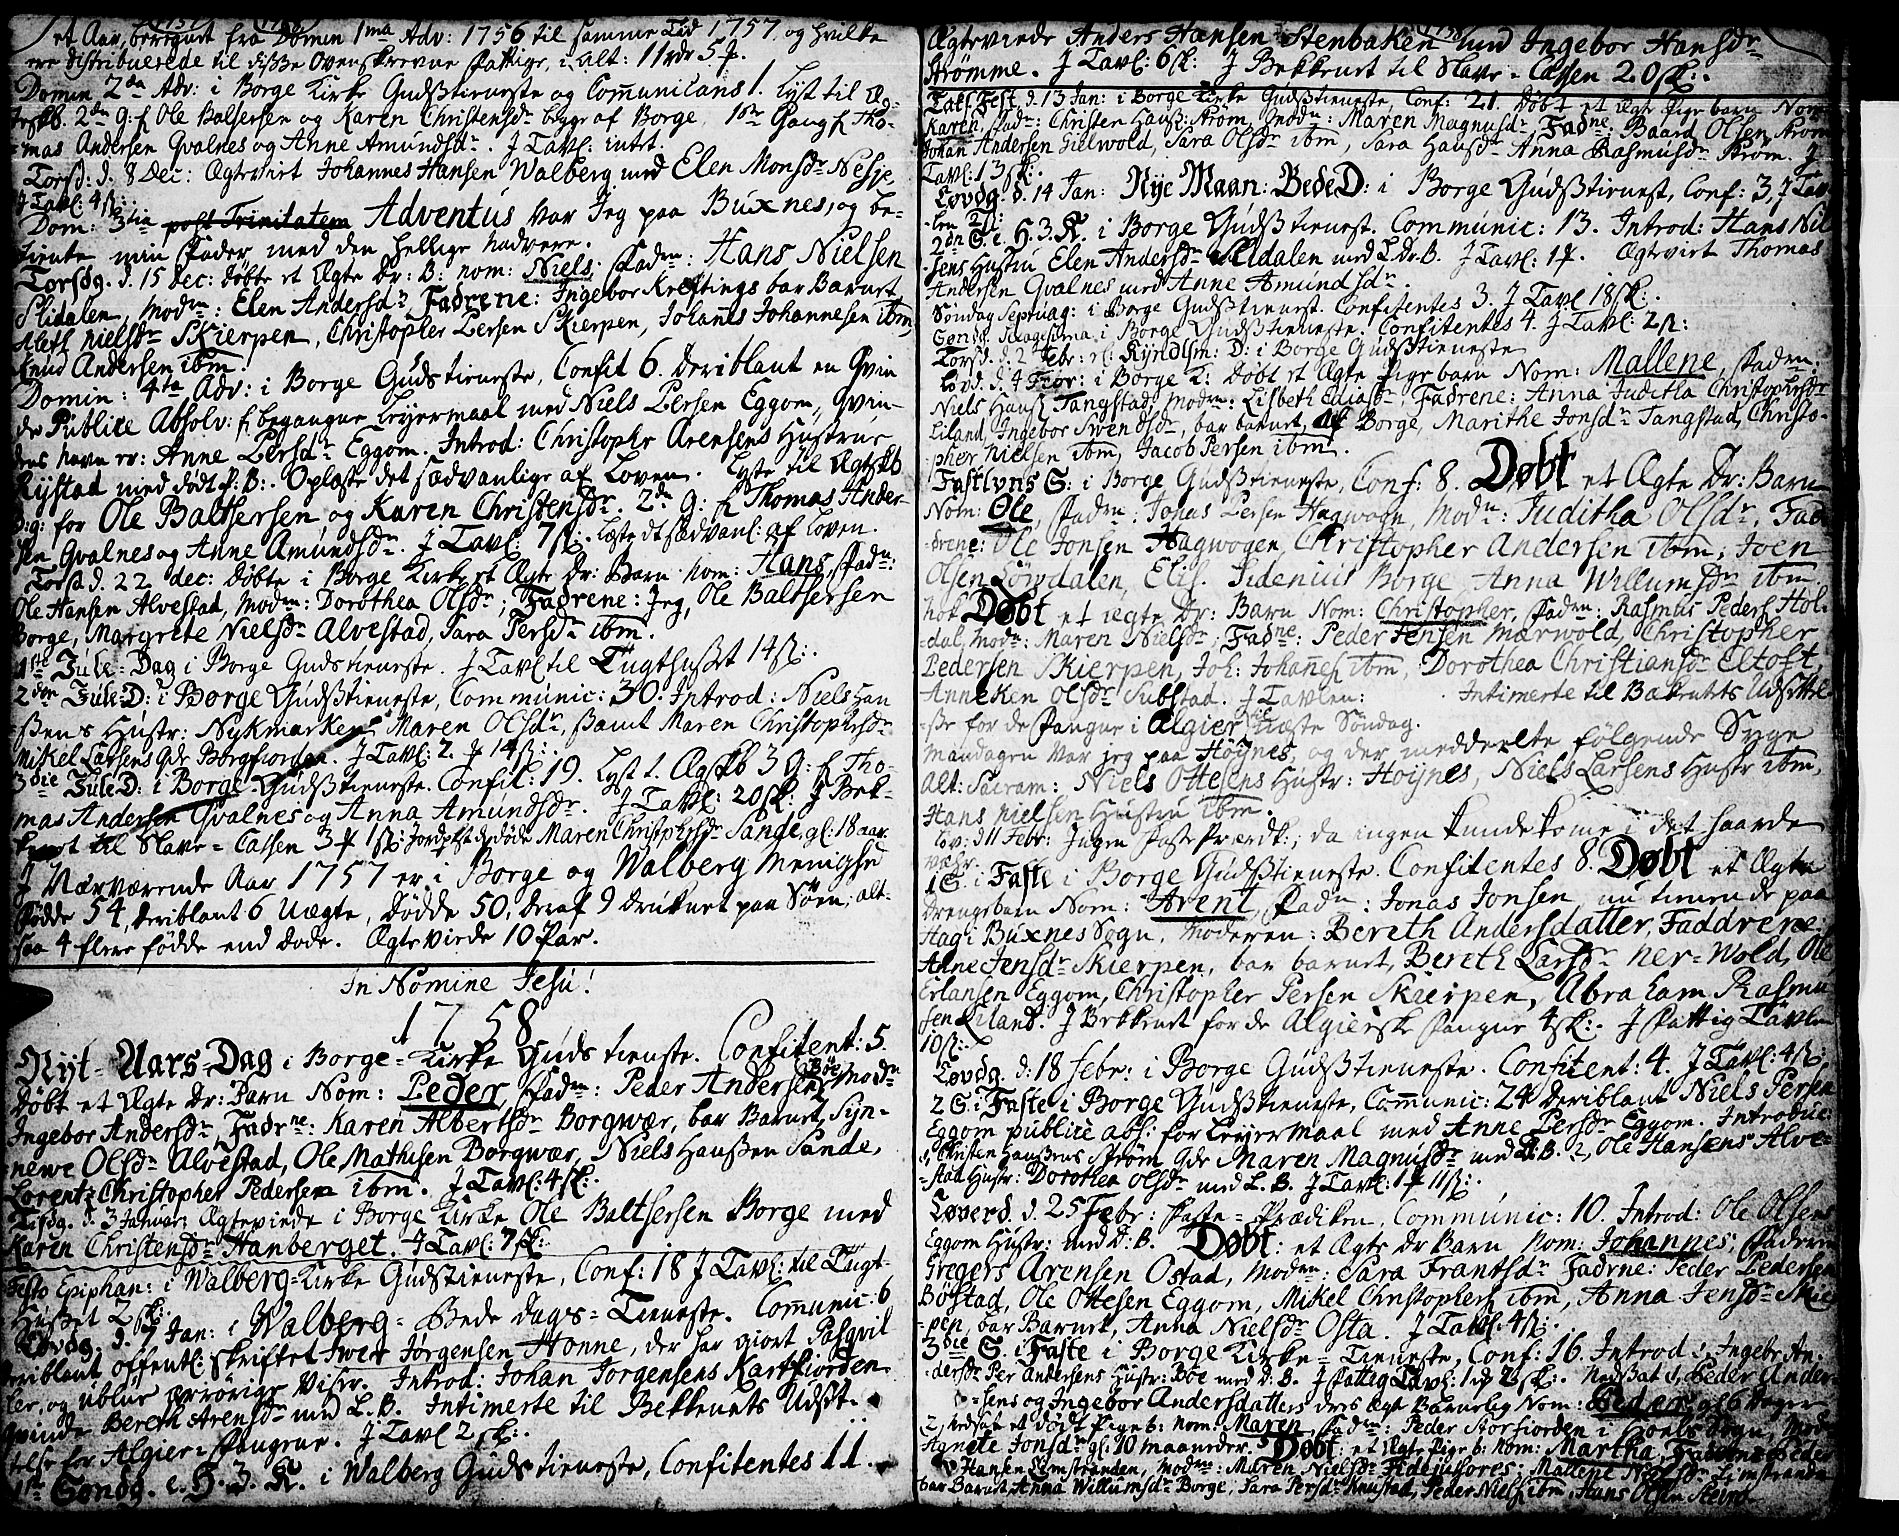 et Aar, beregnet fra Domin 1ma Adv: 1756 til samme Tid 1757. og hvilke
ere distribuerede til disse Ovenskrevne fattige, i alt: 11 rdr 5 f.
Domin 2da Adv: i Borge Kirke Gudstieneste og Communicans 1. Lyst til Æ-
teskb. 2den G: f Ole Baltsersen og Karen Christensdr begge af Borge. 1ste Gang f Tho-
mas Andersen Qvalnes og Anne Amundsdr. J Tavl: intet.
Torsd: d. 8 Dec: Ægteviet Johannes Hansen Walberg med Elen Monsdr Nesje
J Tavl: 4 sk:
Dom: 3tia post Trinitatem Adventus var Jeg paa Buxnes, og be-
tiente min Fader med den hellige nadvere.
Torsdg. d. 15 Dec: døbte et Ægte Dr: B: nom: Niels, Fadn: Hans Nielsen
Slidalen, Modn: Elen Andersdr. Fadrene: Ingebor Kreftings bar Barnet
Aleth Nielsdr Skierpen, Christopher Persen Skierpen, Johannes Johannesen ibm,
Knud Andersen ibm.
Domin: 4ta Adv: i Borge Gudstieneste, Confit 6. Deriblant en Qvin
de Publice Absolv: f begangne Leyermaal med Niels Persen Eggom, Qvin-
dens navn er: Anne Persdr Eggom. Introd: Christophr Arensens Hustrue
Rystad med dødt P: B:. Oplæste det sædvanlige af Loven. Lyste til Ægteskb
3 g: for Ole Baltsersen og Karen Christensdr. 2den G: f Thomas Ander-
sen Qvalnes og Anne Amundsdr. J Tavl: 7 sk:. Læste dt sædvanl: af Loven.
Torsd d. 22 dec: døbte i Borge Kirke et Ægte Dr: Barn nom: Hans, Fadn:
Ole Hansen Alvestad, Modn: Dorothea Olsdr, Fadrene: Jeg, Ole Baltsersen
Borge, Margrete Nielsdr Alvestad, Sara Persdr ibm.
1ste Jule-Dag i Borge Gudstieneste. J Tavl til Tugthuset 14 sk:.
2den Jule-D: i Borge Gudstieneste, Communic: 30. Introd: Niels Han
sens Hustr: Nykmarken, Maren Olsdr, samt Maren Christophersdr
Mikel Larsens Qde Borgfiorden. J Tavl: 2 f 14 sk:
3die Jule D: i Borge Gudstieneste. Confit: 19. Lyst t. Ægskb 3 G: f Tho-
mas Andersen Qvalnes og Anna Amundsdr. J Tavl: 20 sk: J Bek-
kenet til Slave-Cassen 3 f 1 sk: Jordpst de døde Maren Christophersdr Sande, gl: 18 aar.
J Nærværende Aar 1757 er i Borge og Walberg Menighed
fødde 54, deriblant 6 Uægte, Dødde 50, deraf 9 druknet paa Søen; alt-
saa 4 flere fødde end døde. Ægteviede 10 Par.
In Nomine Jesu!
1758
Nyt-Aars-Dag i Borge-Kirke Gudstieneste. Confitent: 5
Døbt et Ægte Dr: Barn Nom: Peder, Fadn: Peder Andersen Böe, Modn
Ingebor Andersdr, Fadrne: Karen Albertsdr Borgwær, bar Barnet, Syn-
newe Olsdr Alvestad, Ole Mathisen Borgwær, Niels Hansen Sande,
Lorentz Christopher Pedersen ibm. J Tavl: 4 sk:.
Tisdg. d. 3 Januar: Ægteviede i Borge Kirke Ole Baltsersen Borge med
Karen Christensdr Hanberget. J Tavl: 7 sk:
Festo Epiphan: i Walberg-Kirke Gudstieneste, Conf: 18 J Tavl: til Tugt-
Huset 2 sk:.
Løvdg. d. 7 Jan: i Walberg-Bede dags-Tieneste. Communic: 6
deriblant offentl: skriftet Iver Jørgensen Honne, der har giort Pasqvil
ler, og ublue ærrørige Viser. Introd: Johan Jorgensens Kartfiorden
Qvinde Bereth Arensdr med L. B. Intimerte til Bekkenets Udst-
telse for Algier-Fangene. J Tavl 2 sk:.
1ste Søndg. e. H. 3. K. i Walberg Gudstieneste, Confitentes 11.
Ægteviede Anders Hansen Stenbaken med Ingebor Hansdr
Strømme. J Tavl: 6 sk: J Bekkenet til Slave-Cassen 20 sk:.
Takk Fest d. 13 Jan: i Borge Kirke Gudstieneste, Conf: 21. Døbt et ægte Pige barn Nom:
Karen, Fadn: Christen Hansen Strøm, Modn: Maren Magnusdr, Fadne: Baard Olsen Strøm
Johan Andersen Gielwold, Sara Olsdr ibm, Sara Hansdr Anna Rasmusdr Strøm. J
Tavl: 13 sk:.
Løvdg. d. 14 Jan: Nye Maan: Bede D: i Borge Gudstienest, Conf: 3, J Tav
len 2 f:
2den S. e. H. 3. K. i Borge Gudstienest. Communic: 13. Introd: Hans Niel
sens Hustru Elen Andersdr Slidalen med L. Dr. B. J Tavl: 1 f. Ægteviet Thomas
Andersen Qvalnes med Anne Amundsdr.
Søndag Septuag: i Borge Gudstienest. Confitentes 3. J Tavl 18 sk:.
Søndg. Sexagesima i Borge Gudstieneste. Confitentes 4. J Tavl: 2 sk:
Torsd. d. 2 Febr: : Kyndlsm: D: i Borge Gudstieneste
Løvd. d. 4 Febr: i Borge K: Døbt et Ægte Pige barn Nom: Mallene, Fadn:
Niels Hansen Tangstad, Modn: Lisbeth Ediasdr Fadrene: Anna Juditha Christophersdr
Liland, Ingebor Swendsdr, bar barnet, af Borge, Marithe Jonsdr Tangstad, Christo-
pher Nielsen ibm, Jacob Persen ibm.
Fastlvns S: i Borge Gudstieneste, Conf: 8. Døbt et Ægte Dr: Barn
Nom: Ole, Fadn: Johas Persen Hagwogn, Modn: Juditha Olsdr, Fad
drene: Ole Jonsen Hagwogen, Christopher Andersen ibm, Joen
Olsen Lørsdalen, Elis. Sidenius Borge Anna Willumsdr ibm.
nok Døbt et ægte Dr: Barn Nom: Christopher, Fadn: Rasmus Peders Hol-
dal, Modn: Maren Nielsdr, Fadne: Peder Jensen Mærwold, Christopher
Pedersen Skierpen, Joh: Johanes ibm, Dorothea Christiansdr Eltoft,
Anneken Olsdr Substad. J Tavlen: Intimerte til Bekkenets Udsette
sse for de fangne i Algier næste Søndag.
Mandagen var jeg paa Høynes, og der meddeelte følgende Syge
Alt: Sacram: Niels Ottesens Hustr: Høynes, Niels Larsens Hustr ibm,
Hans Nielsen Hustru ibm.
Løv: d 11 Febr: Ingen Faste Prædk:, da ingen kunde kome i det haarde
væhr.
1 S. i Faste i Borge Gudstieneste. Confitentes 8. Døbt et Ægte
Drengebarn Nom: Arent, Fadn: Jonas Jonsen, nu tienende paa
Hag i Buxnes Sogn, Moderen: Bereth Andersdatter, Faddrene:
Anne Jensdr Skierpen, bar barnet, Bereth Larsdr Ner-Wold, Ole
Erlansen Eggom, Christopher Persen Skierpen, Abraham Rasmu
sen Liland. J Bekkenet for de Algierske Fangne 4 sk:. J Fattig Tavlen
10 sk:.
Løvdg. d: 18 febr: i Borge Gudstieneste. Confitent: 4. J Tavl: 4 sk:
2 S. i Faste i Borge Gudstieneste, Communic: 24 deriblant Niels Persen
Eggom publice abs: for Leyermaal med Anne Persdr Eggom. Introduc:
1, Christen Hansens Strøm Qde Maren Magnusdr med P. B. 2, Ole Hansens Alve-
stad Hustr: Dorothea Olsdr med L. B. J Tavl: 1 f 11 sk:.
Løverd. d. 25 Febr: Faste-Prædiken, Communic: 10. Introd: Ole Olsens
Eggom Hustr: med D: B. Døbt: et Ægte Dr Barn Nom: Johannes, Faderen
Gregers Arensen Ostad, Modn: Sara Frantsdr Fadrne: Peder Pedersen
Bøstad, Ole Ottesen Eggom, Mikel Christophers ibm, Anna Jensdr Skier
pen, bar Barnet, Anna Nielsdr Osta. J Tavl: 4 sk:.
3die S. i Faste i Borge Kirke-Tieneste, Conf: 16. Introd: 1, Ingebr An-
dersdr Per Andersens Hustr: Böe med D: B. J Fattig Tavl: 1 f 2 sk:. Nedsat 1, Peder Ander-
sens og Ingebor Andersdatters deres Ægte Barnelig Nom: Peder gl 6 Dager
2, nedsat et dødt Pigeb: nom: Maren, Fadn: Peder Storfiorden i Hoels Sogn, Modn
Agnete Jonsdr gl: 10 maaneder. Døbt: et Ægte Pige b: nom: Martha, Faderen Peder
Hansen Limstranden, Modn: Maren Nielsdr Fidejussores: Mallene Nielsdr Limstranden
bar Barnet, Anna Willumsdr Borge, Sara Persdr Knustad, Peder Niels ibm, Hans Olsen Steiro